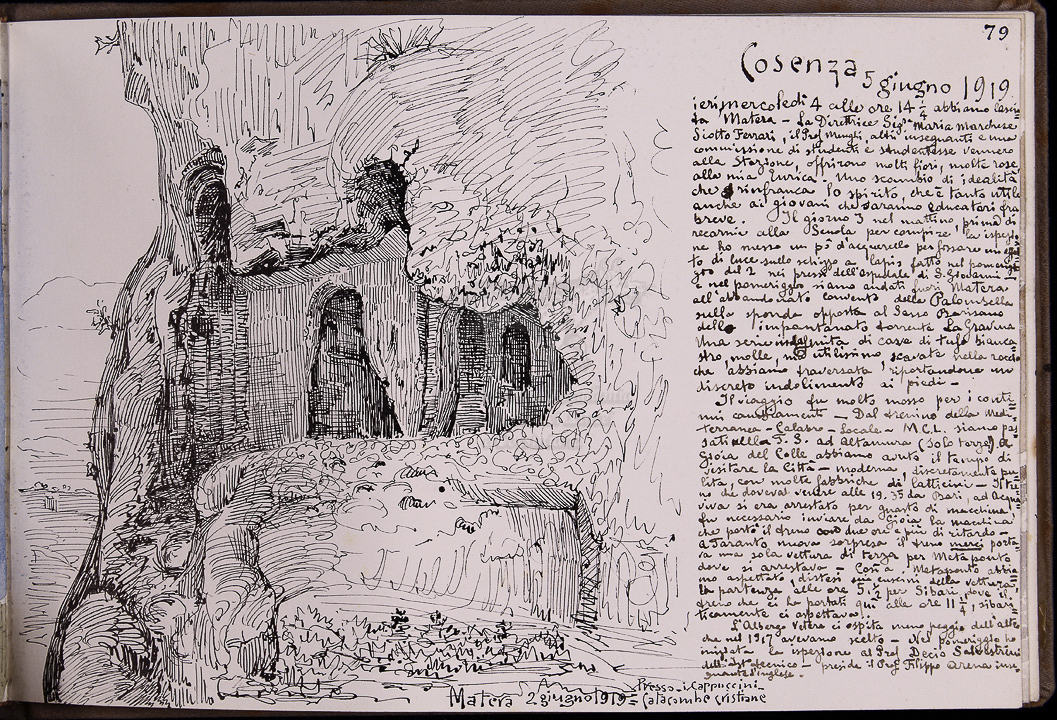 79
Cosenza 5 giugno 1919
ieri mercoledì 4 alle ore 14 ¼ abbiamo lascia=
to Matera - La Direttrice Sigra Maria Marchese
Scotto Ferrari, il Prof Munghi, altri insegnanti e una
commissione di studenti e studentesse vennero
alla Stazione, offrirono molti fiori, molte rose
alla mia Enrica - Uno scambio di idealità
che rinfranca lo spirito, che è tanto utile
anche ai giovani che saranno educatori fra
breve. Il giorno 3 nel mattino, prima di
recarmi alla Scuola per compire la ispezio=
ne ho messo un pò d'acquerello per fissare un effet=
to di luce sullo schizzo a lapis fatto nel pomerig=
gio del 2 nei pressi dell'ospedale di S. Giovanni -
e nel pomeriggio siamo andati fuori Matera
all'abbandonato convento della Palombella
sulla sponda opposta al Sasso Barisano
dello impantanato torrente La Gravina
Una serie infinita di cave di tufo bianca=
stro, molle, utilissimo, scavate nella roccia
che abbiamo traversata riportandone un
discreto indolimento ai piedi -
Il viaggio fu molto mosso per i conti=
nui cambiamenti - Dal trenino della Medi=
terranea - Calabro - Locale - M.C.L. siamo pas=
sati nelle F.S. ad Altamura (solo torre) a
Gioia del Colle abbiamo avuto il tempo di
visitare la Città - moderna, discretamente pu=
lita, con molte fabbriche di latticini - Il tre=
no che doveva venire alle 19.35 da Bari, ad Acqua
viva si era arrestato per guasto di macchina
fu necessario inviare da Gioia la macchina
che portò il treno con due ore e più di ritardo -
a Taranto nuova sorpresa il treno merci porta=
va una sola vettura di terza per Metaponto
dove si arrestava - Così a Metaponto abbia=
mo aspettato, distesi sui cuscini della vettura
la partenza alle ore 5 ½ per Sibari, dove il
treno che ci ha portati qui alle ore 11 ½, sibari=
ticamente ci aspettava.
L'Albergo Vetere ci ospita meno peggio dell'altro
che nel 1917 avevamo scelto - Nel pomeriggio ho
iniziata la ispezione al Prof Decio
dell'Ist. tecnico - preside il Prof. Filippo Arena inse=
gnante d'inglese.
Matera 2 giugno 1919 = Presso i Cappuccini -
Catacombe cristiane